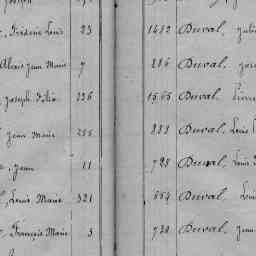 Frédéric Louis 23
Alexis Jean Marie 7
Joseph Félix 236
Jean Marie 255
Jean 11
Louis Marie 321
François Marie 3
1482 Duval, Juli
286 Duval, Jose
1565 Duval, Pierre
888 Duval, Louis
798 Duval, Louis
664 Duval, Loui
738 Duval, Jean